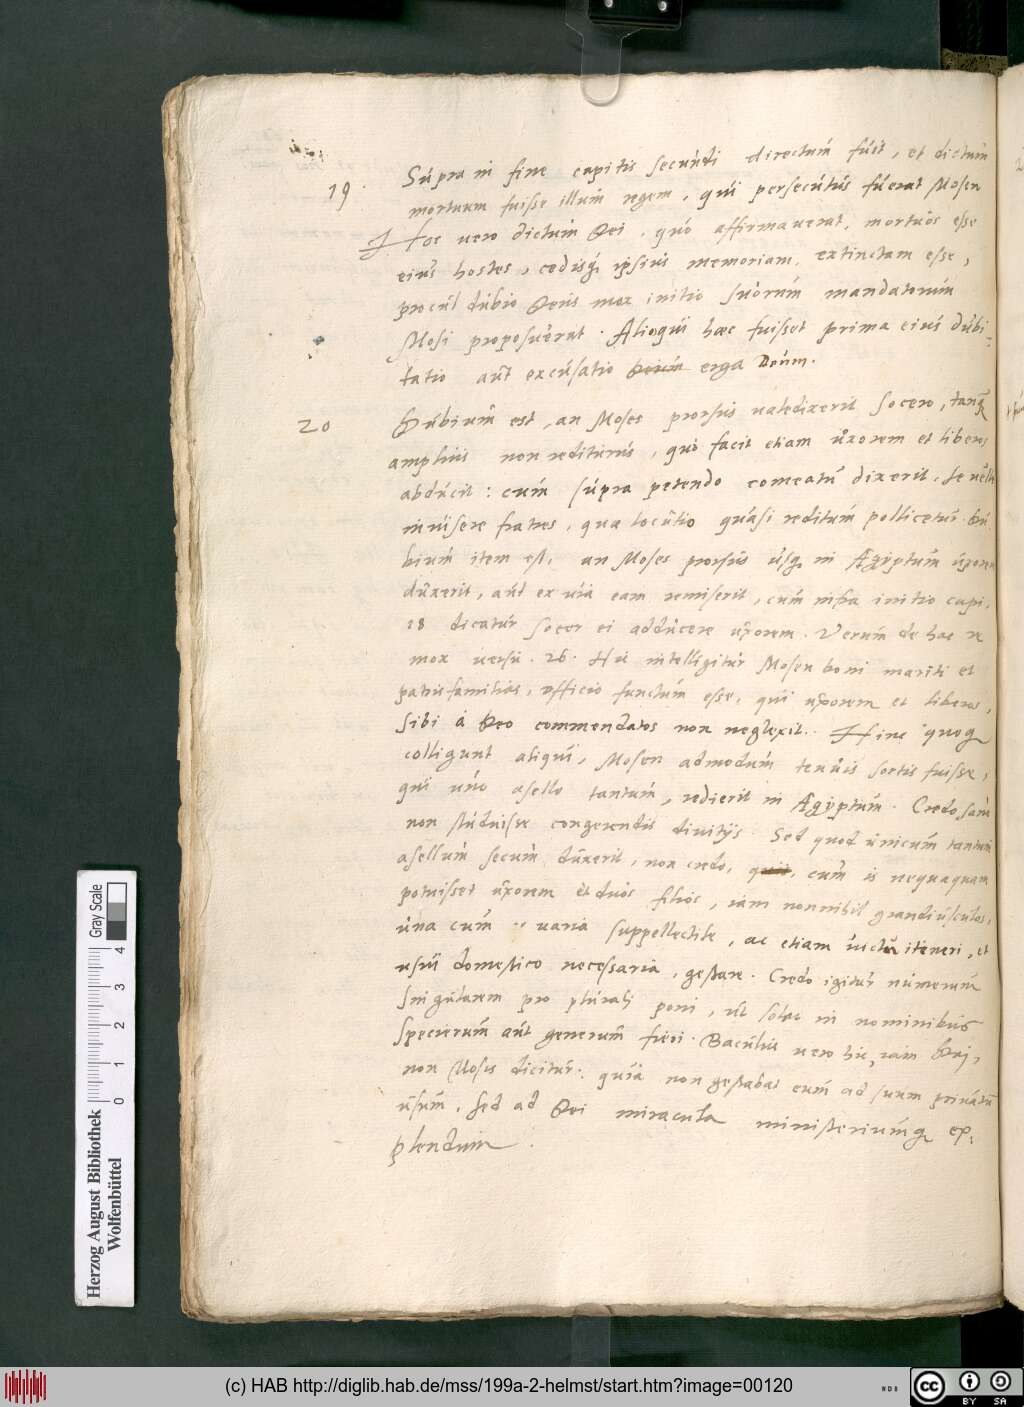 19.
Supra in fine capitis secundi directum fuit, et dictum
mortuum fuisse illum regem, qui persecutus fuerat Mosen
Hoc vero dictum Dei, quo affirmaverat, mortuos esse
eius hostes, ipsius memoriam, extinctam esse,
procul dubio Deus mox initio suorum mandatorum
Mosi proposuerat. Alioqui haec fuisset prima eius dubi-
tatio aut excusatio erga Deum.
20
Dubium est, an Moses prorsus valedixerit socero, tanq
amplius non rediturus, quo facit etiam uxorem et liberos
abducit: cum supra petendo comeatu dixerit, se velle
invisere fratres, qua locutio quasi reditum pollicetur. Du
bium item est, an Moses prorsus usq in Ægyptum uxorem
duxerit, aut ex via eam remiserit, cum infra initio capi.
18 dicatur socer ei adducere uxorem. Verum de hac re
mox versu. 26. Hic intelligitur Mosen boni mariti et
patrisfamilias, officio functum esse, qui uxorem et liberos,
sibi à Deo commendatos non neglexit. Hinc quoq
colligunt aliqui, Mosen admodum tenuis sortis fuisse,
qui uno asello tantum, redierit in Ægyptum. Credo sanè
non studuisse congerendis divitijs. Sed quod unicum tantum
asellum secum duxerit, non credo, cum is nequaquam
potuisset uxorem et duos filios, iam nonnihil grandiusculos,
una cum varia suppellectile, ac etiam victu iteneri, et
usui domestico necessaria, gestare. Credo igitur numerum
singularem pro plurali poni, ut solet in nominibus
specierum aut generum fieri. Baculus vero hic, iam Dej,
non Mosis dicitur: quia non gestabat eum ad suum privatu
usum, sed ad Dei miracula ministeriumq ex-
plendum.
Herzog August Bibliothek
Wolfenbüttel
0 1 2 3 4
Gray Scale
(c) HAB http://diglib.hab.de/mss/199a-2-helmst/start.htm?image=00120
NDB
CC BY SA